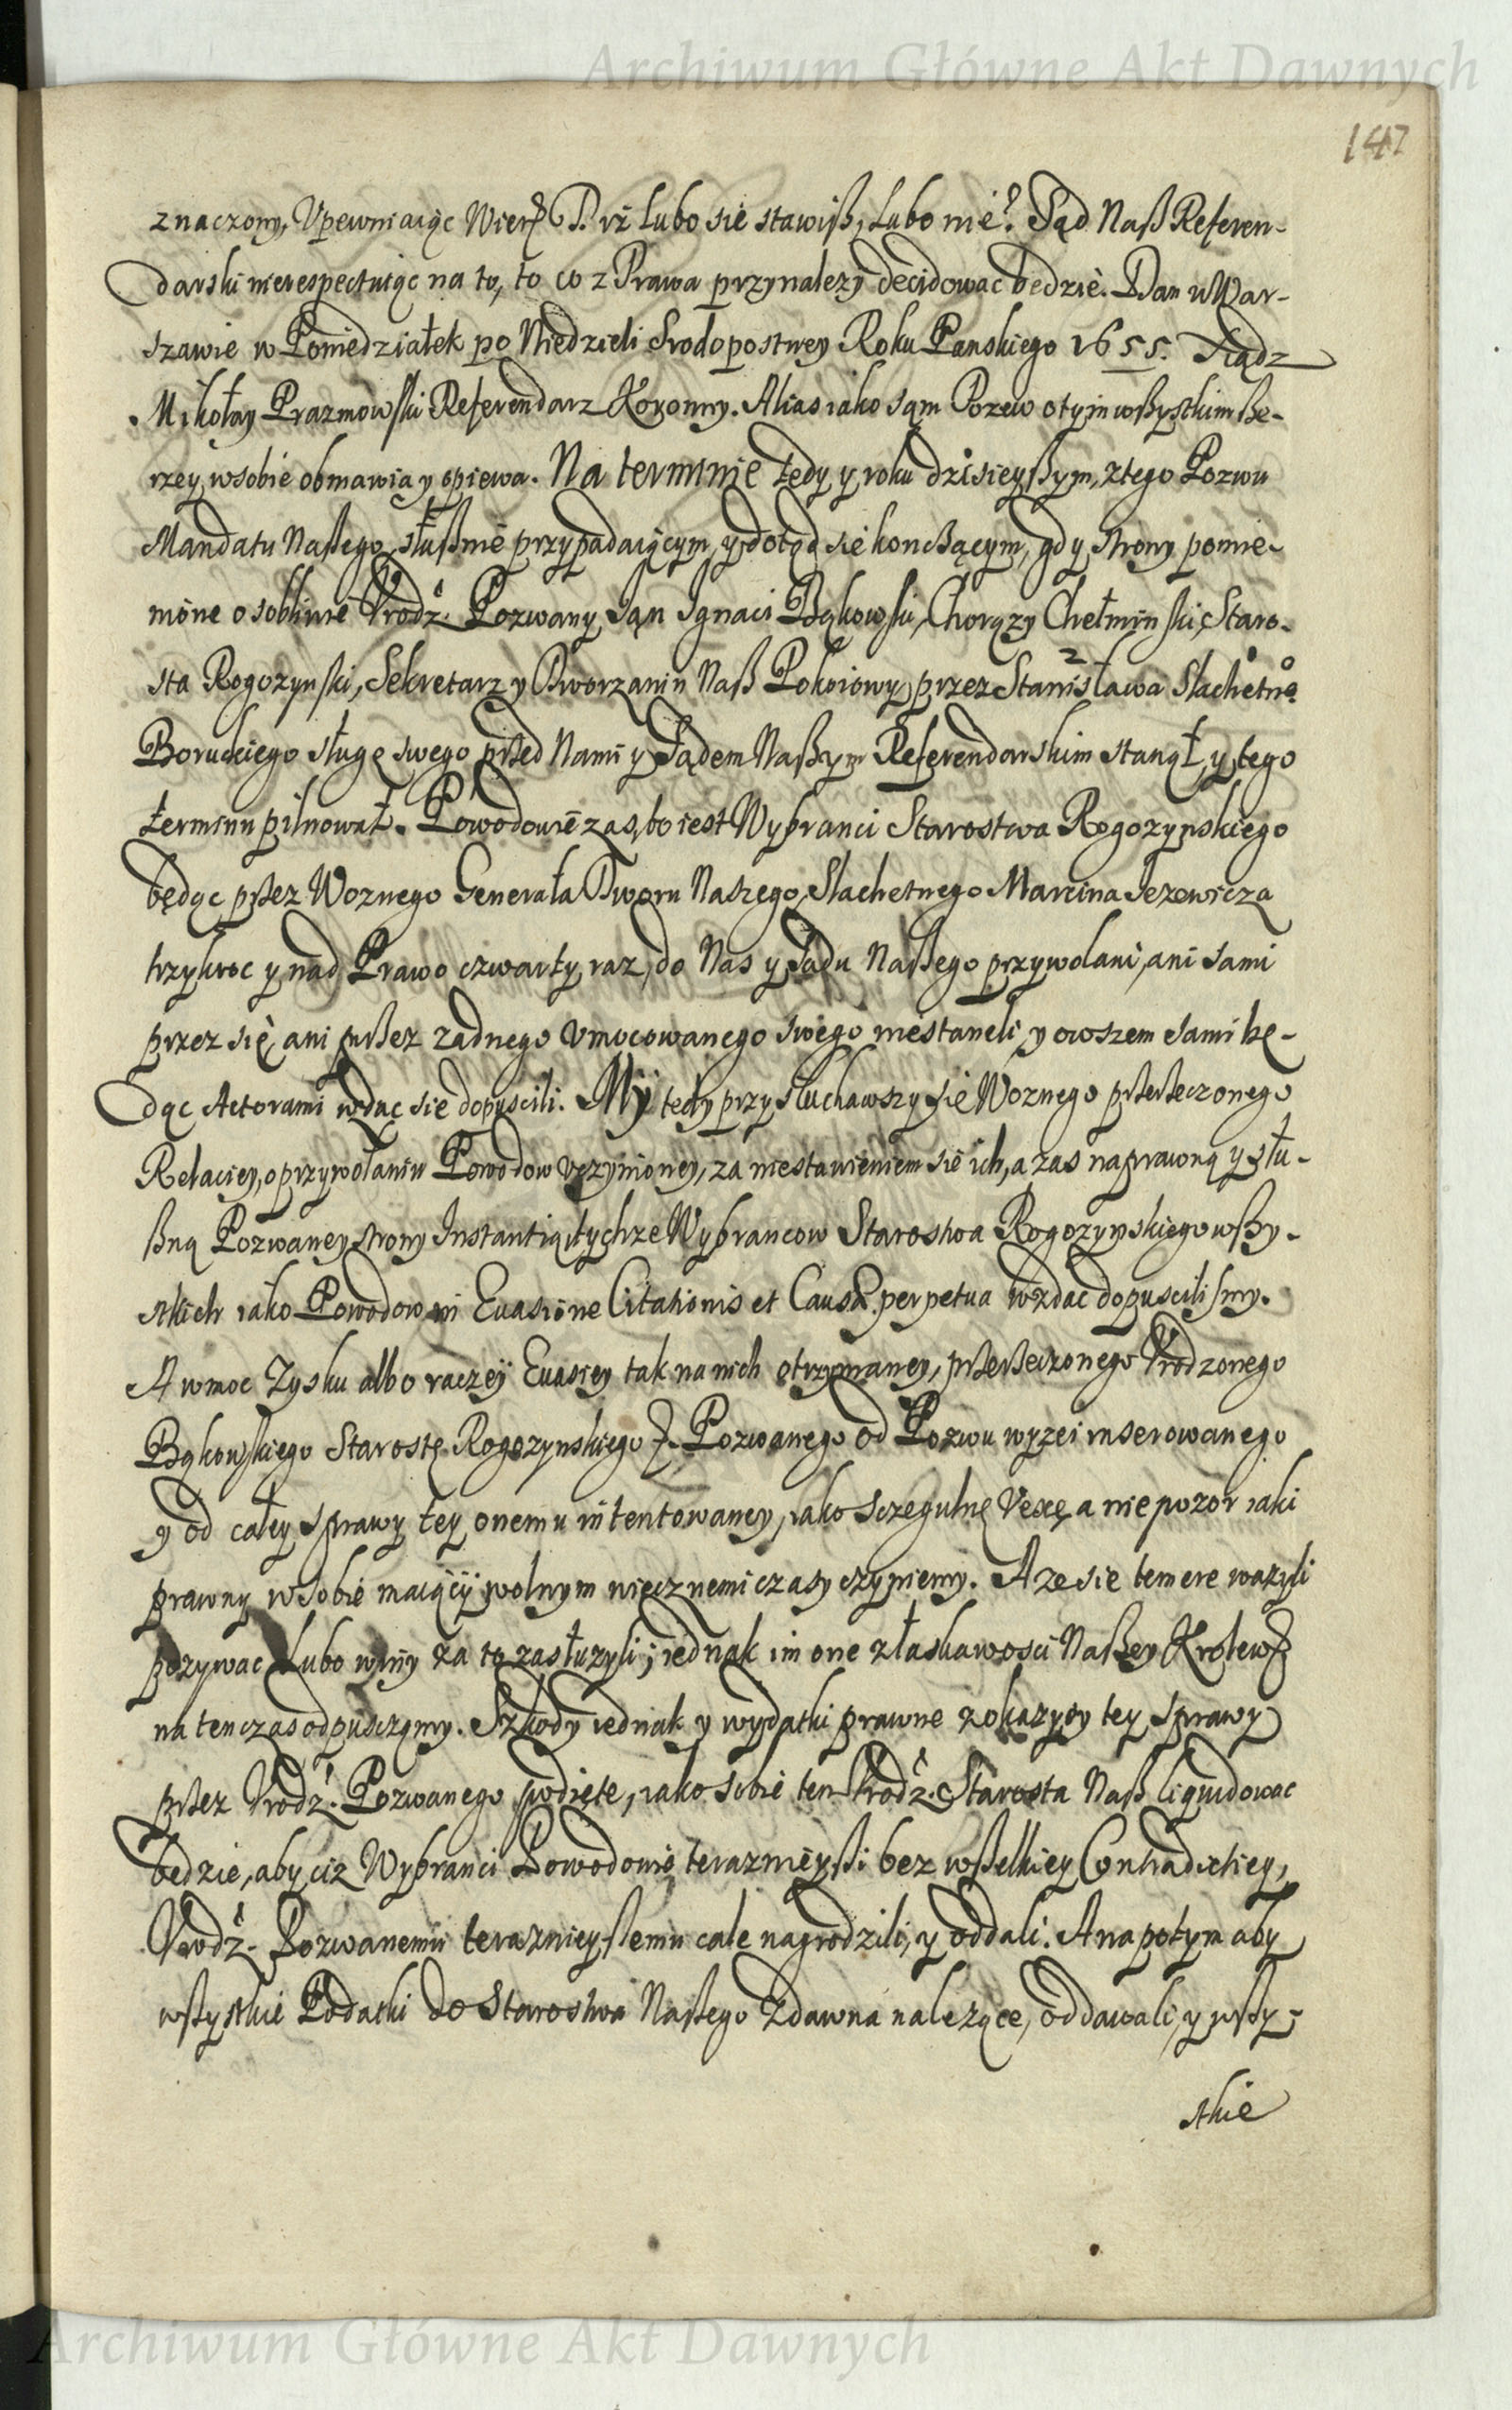 Archiwum Główne Akt Dawnych
147
znaczony, Vpewniaiąc Wier. T. iż lubo sie stawiß, lubo nie. Sąd Naß Referen-
darski nierespectuiąc na to, to co z Prawa przynalezy decidowac bedzie. Dan w War-
szawie w Poniedziałek po Niedzieli Srodopostney Roku Panskiego 1655. Xiądz
Mikołay Prazmowski Referendarz Koronny. Alias iako sam Pozew o tym wßystkim ße-
rzey w sobie obmawia y opiewa. Na terminie tedy y roku dzisieyßym, z tego Pozwu
Mandatu Naßego słußnie przypadaiącym, y dotąd sie konczącym, gdy strony pomie-
nione osobliwie Vrodz. Pozwany Jan Ignaci Bąkowski, Chorązy Chełminski, Staro-
sta Rogozynski, Sekretarz y Dworzanin Naß Pokoiowy, przez Stanisława Slachetneo
Boruckiego sługę swego przed Nami y Sądem Naßym Referendarskim stanął, y tego
terminu pilnował. Powodowie zas, to iest Wybranci Starostwa Rogozynskiego
będąc przez Woznego Generała Dworu Naszego, Slachetnego Marcina Jezewicza
trzykroc y nad Prawo czwarty raz, do Nas y Sądu Naßego przywolani, ani sami
przez się, ani przez zadnego vmocowanego swego niestaneli, y owszem sami bę-
dąc Actorami wzdac sie dopuscili. My tedy przysłuchawszy sie Woznego przerzeczonego
Relaciey, o przywołaniu Powodow vczynioney, za niestawieniem sie ich, a zas naprawną y słu-
ßną Pozwaney strony Instantią, tychze Wybrancow Starostwa Rogozynskiego wßy-
stkich iako Powodow in Euasione Citationis et Causæ perpetua wzdac dopuscilismy.
A w moc Zysku albo raczey Euasiey tak na nich otrzymaney, przerzeczonego Vrodzonego
Bąkowskiego Starostę Rogozynskiego Pozwanego od Pozwu wyzei inserowanego
y od całey sprawy tey onemu intentowaney, iako sczegulnę Vexę a nie pozor iaki
prawny w sobie maiącÿ wolnym wiecznemi czasy czyniemy. A ze sie temere wazyli
pozywac lubo winy za to zasłuzyli; iednak im one z łaskawosci Naßey Krolew
na ten czas odpusczamy. Szkody iednak y wydatki prawne z okazyey tey sprawy
przez Vrodz. Pozwanego podięte, iako sobie ten Vrodz. Starosta Naß liquidowac
bedzie, aby ciz Wybranci Powodowie teraznieyßi bez wßelkiey Contradictiey,
Vrodz. Pozwanemu teraznieyßemu cale nagrodzili, y oddali. A na potym aby
wßystkie Podatki do Starostwa Naßego Zdawna nalezące, oddawali, y wßy-
stkie
Archiwum Główne Akt Dawnych